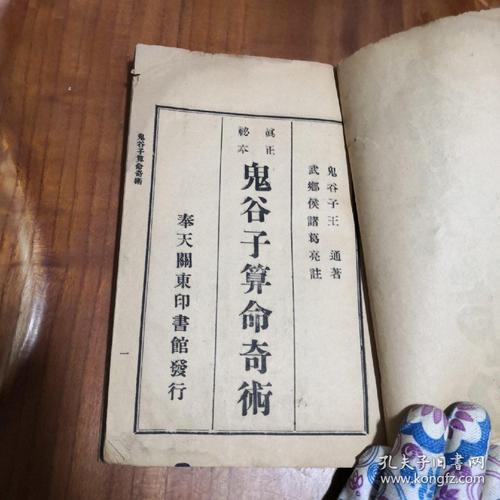 鬼谷子王 通著
武鄉侯諸葛亮註
眞正
秘本
鬼谷子算命奇術
奉天關東印書館發行
鬼谷子算命奇術
一
孔夫子旧书网
www.kongfz.com